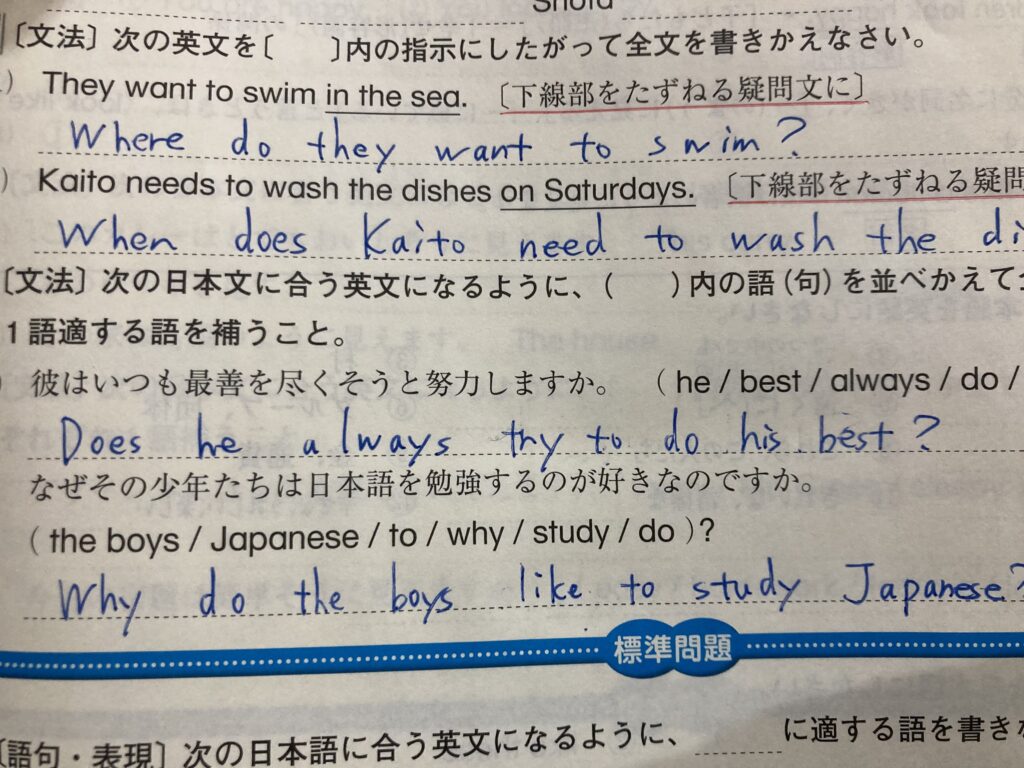 Shota
〔文法〕次の英文を〔　　〕内の指示にしたがって全文を書きかえなさい。
) They want to swim in the sea. 〔下線部をたずねる疑問文に〕
Where do they want to swim?
) Kaito needs to wash the dishes on Saturdays. 〔下線部をたずねる疑問
When does Kaito need to wash the di
〔文法〕次の日本文に合う英文になるように、(　　)内の語(句)を並べかえて
1語適する語を補うこと。
) 彼はいつも最善を尽くそうと努力しますか。 ( he / best / always / do /
Does he always try to do his best?
なぜその少年たちは日本語を勉強するのが好きなのですか。
( the boys / Japanese / to / why / study / do )?
Why do the boys like to study Japanese?
標準問題
〔語句・表現〕次の日本語に合う英文になるように、 に適する語を書き